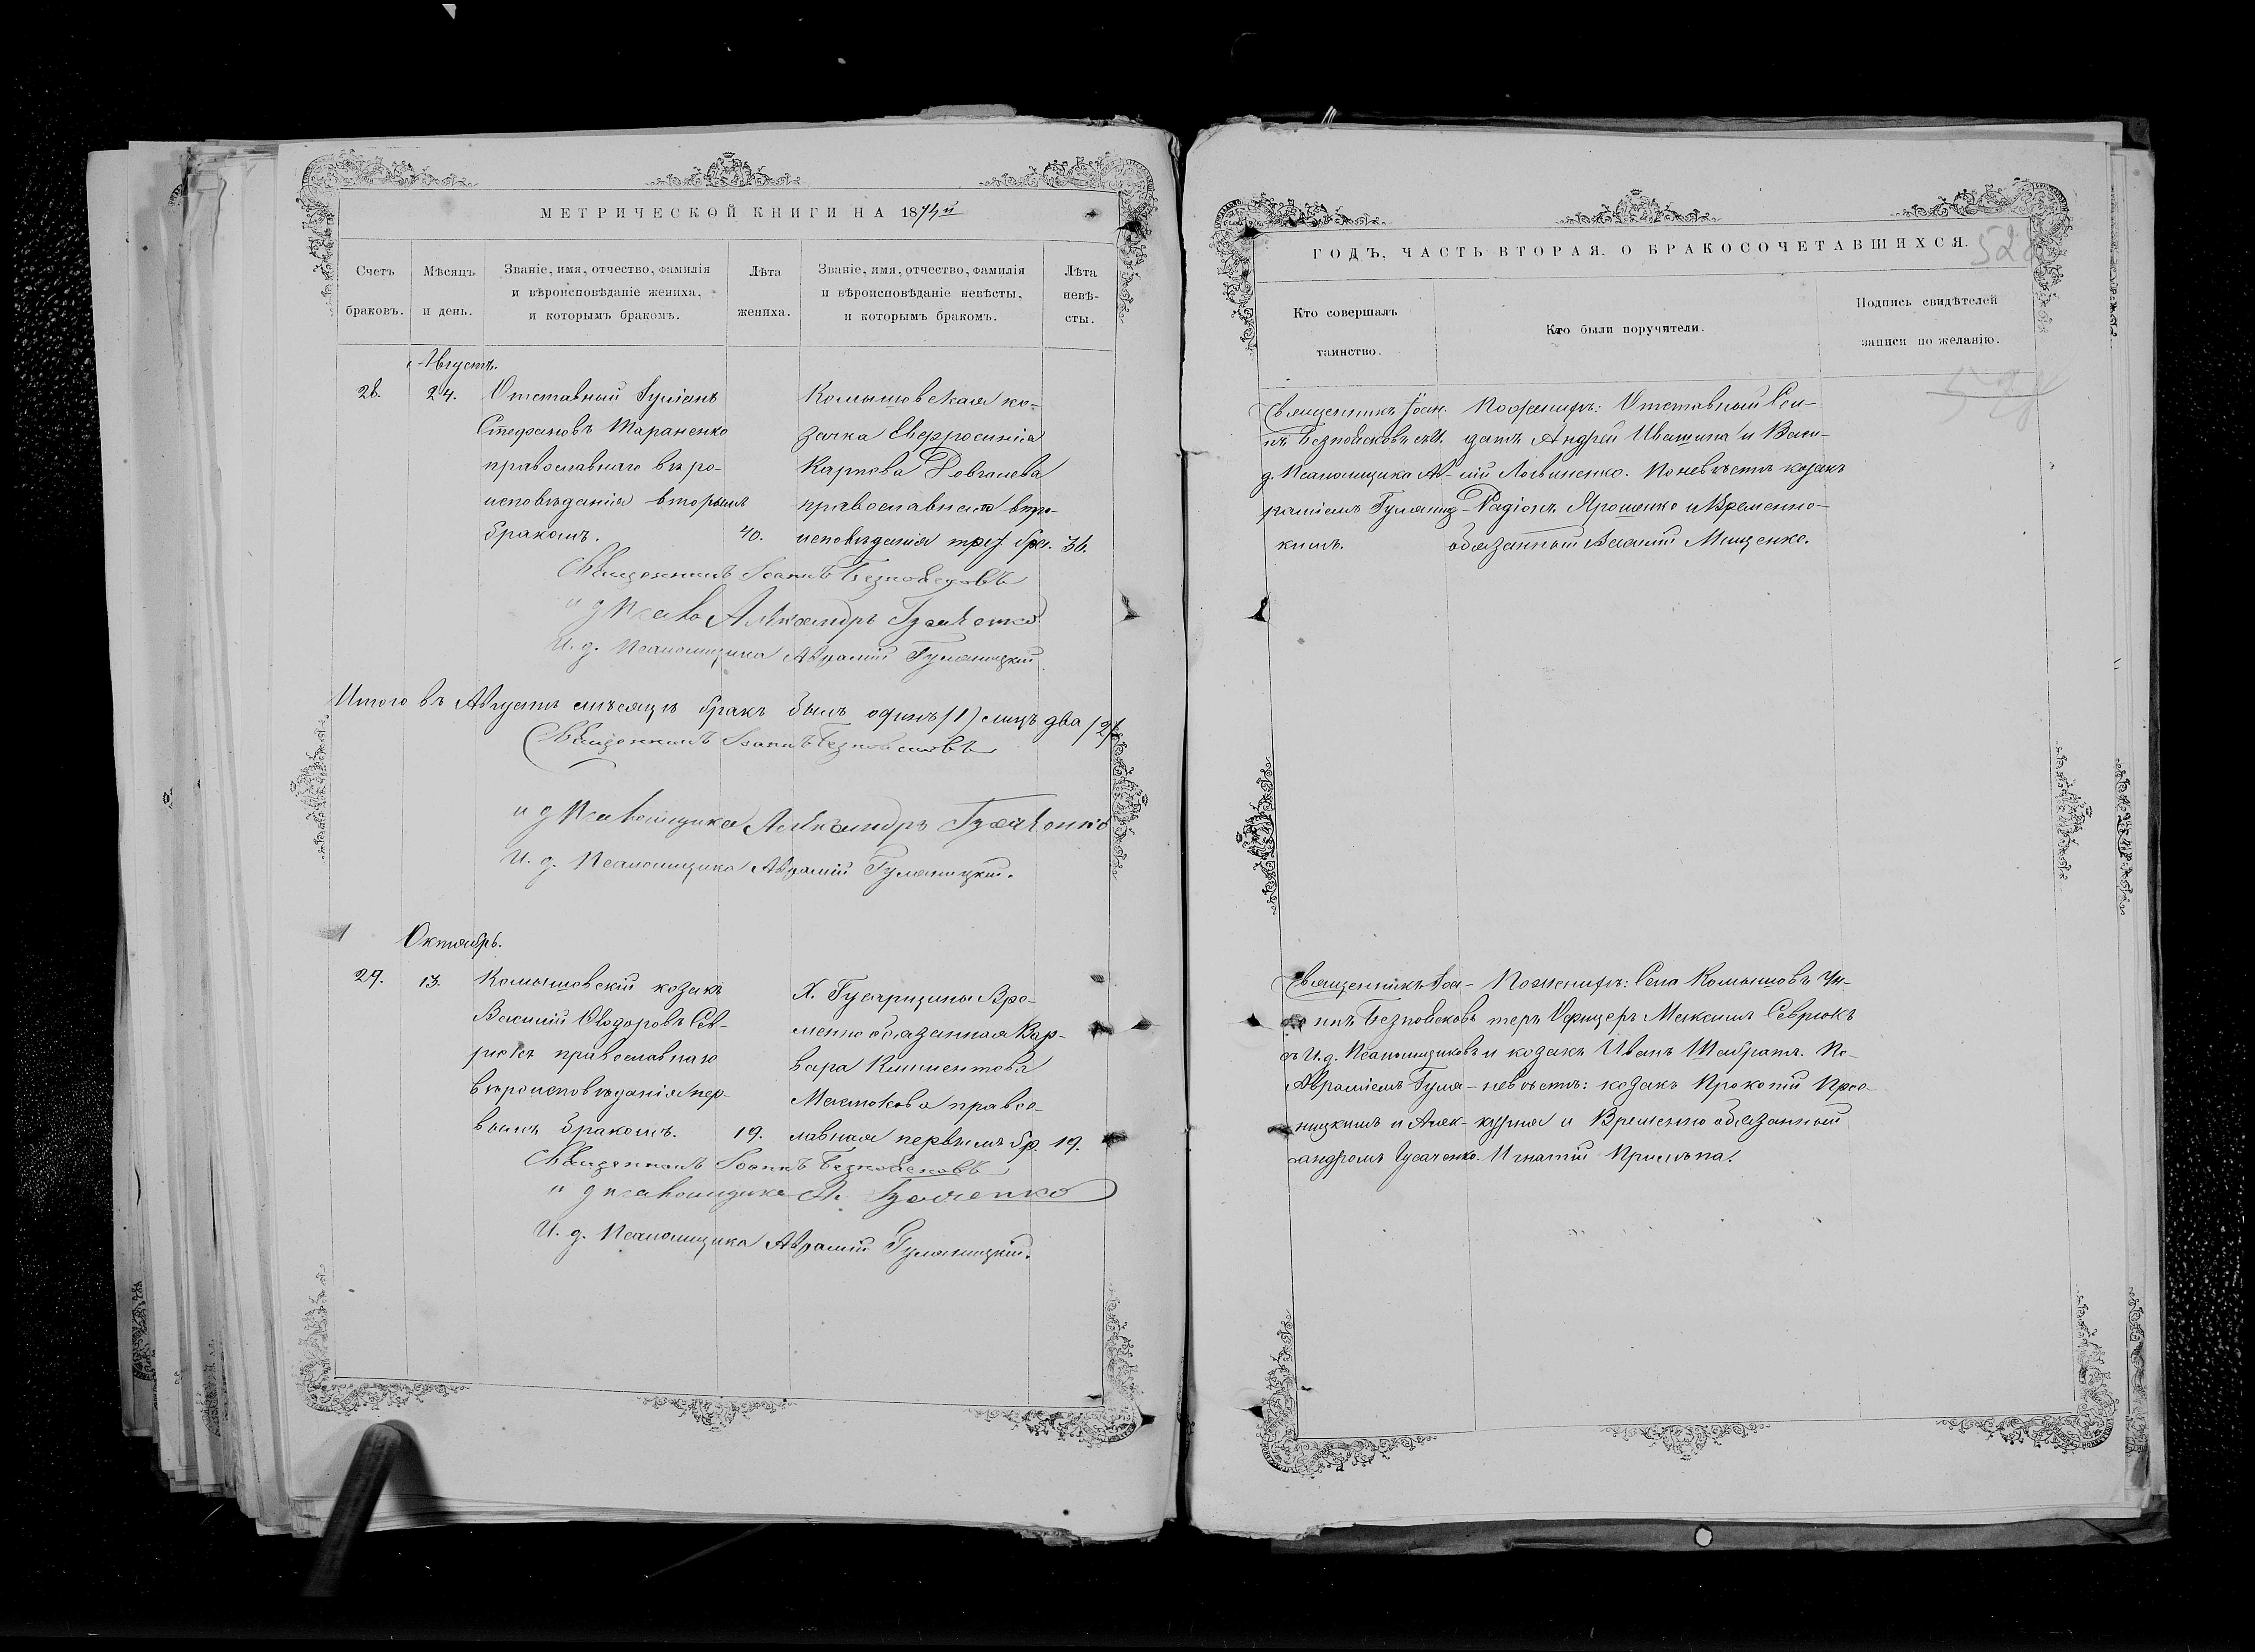 МЕТРИЧЕСКОЙ КНИГИ НА 1874й
Счетъ браковъ.
Мѣсяцъ и день.
Званіе, имя, отчество, фамилія
и вѣроисповѣданіе жениха,
и которымъ бракомъ.
Лѣта жениха.
Званіе, имя, отчество, фамилія
и вѣроисповѣданіе невѣсты,
и которымъ бракомъ.
Лѣта невѣ-
сты.
Августъ.
28.
24.
Отставный Іуліанъ
Стефановъ Тараненко
православнаго вѣро-
исповѣданія вторымъ
бракомъ.
40.
Комышовская ко-
зачка Евфросинія
Карпова Довгалева
православнаго вѣро-
исповѣданія
36.
Священникъ Іоаннъ Безпойсковъ
Александръ Гусаченко
И. д. Псаломщика Аврамій Гуляницкій
Итого въ Августѣ мѣсяцѣ бракъ былъ одинъ /1/ лицъ два /2/
Священникъ Іоаннъ Безпойсковъ
и д Псаломщика Александръ Гусаченко
И. д. Псаломщика Аврамій Гуляницкій.
Октябрь.
29.
13.
Комышовскій козакъ
Василій Ѳеодоровъ Сев-
рюкъ православнаго
вѣроисповѣданія пер-
вымъ бракомъ.
19.
Х. Гусарщины Вре-
менно обязанная Вар-
вара Климентова
правос-
лавная первымъ бр.
19.
Священникъ Іоаннъ Безпойсковъ
и д псаломщика А. Гусаченко
И. д. Псаломщика Аврамій Гуляницкій.
ГОДЪ, ЧАСТЬ ВТОРАЯ, О БРАКОСОЧЕТАВШИХСЯ.
528
Кто совершалъ
таинство.
Кто были поручители.
Подпись свидѣтелей
записи по желанію.
528
Священникъ Іоан-
нъ Безпойсковъ съ И.
д. Псаломщика Ав-
раміемъ Гуляниц-
кимъ.
По женихѣ: Отставный Сол-
датъ Андрей Ивашина и Васи-
лій Логвиненко. По невѣстѣ козакъ
Радіонъ Ярошенко и Временно-
обязанный Мищенко.
Священникъ Іоа-
ннъ Безпойсковъ
съ И. д. Псаломщиковъ
Авраміемъ Гуля-
ницкимъ и Алек-
сандромъ Гусаченко.
По женихѣ: Села Комышовъ Ун-
теръ Офицеръ Максимъ Севрюкъ
и козакъ Иванъ Шабратъ. По
невѣстѣ: козакъ Прокопій
и Временно обязанный
Игнатій Прилѣпа.